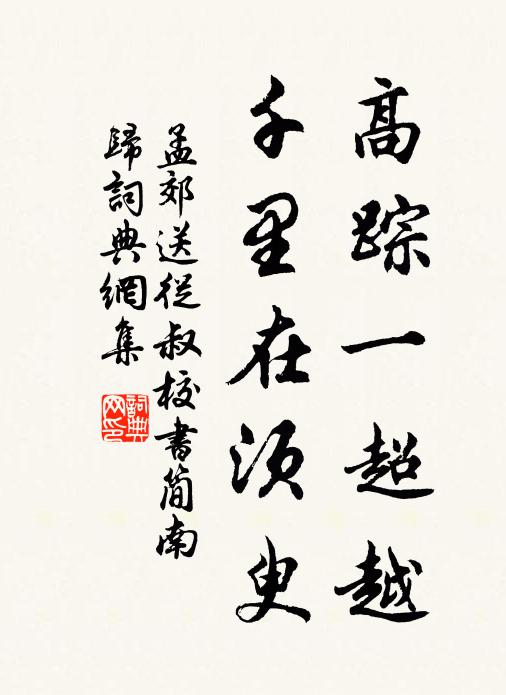 高踪一超越
千里在须臾
孟郊送從叔校書簡南
歸詞典網集
詞典
网印